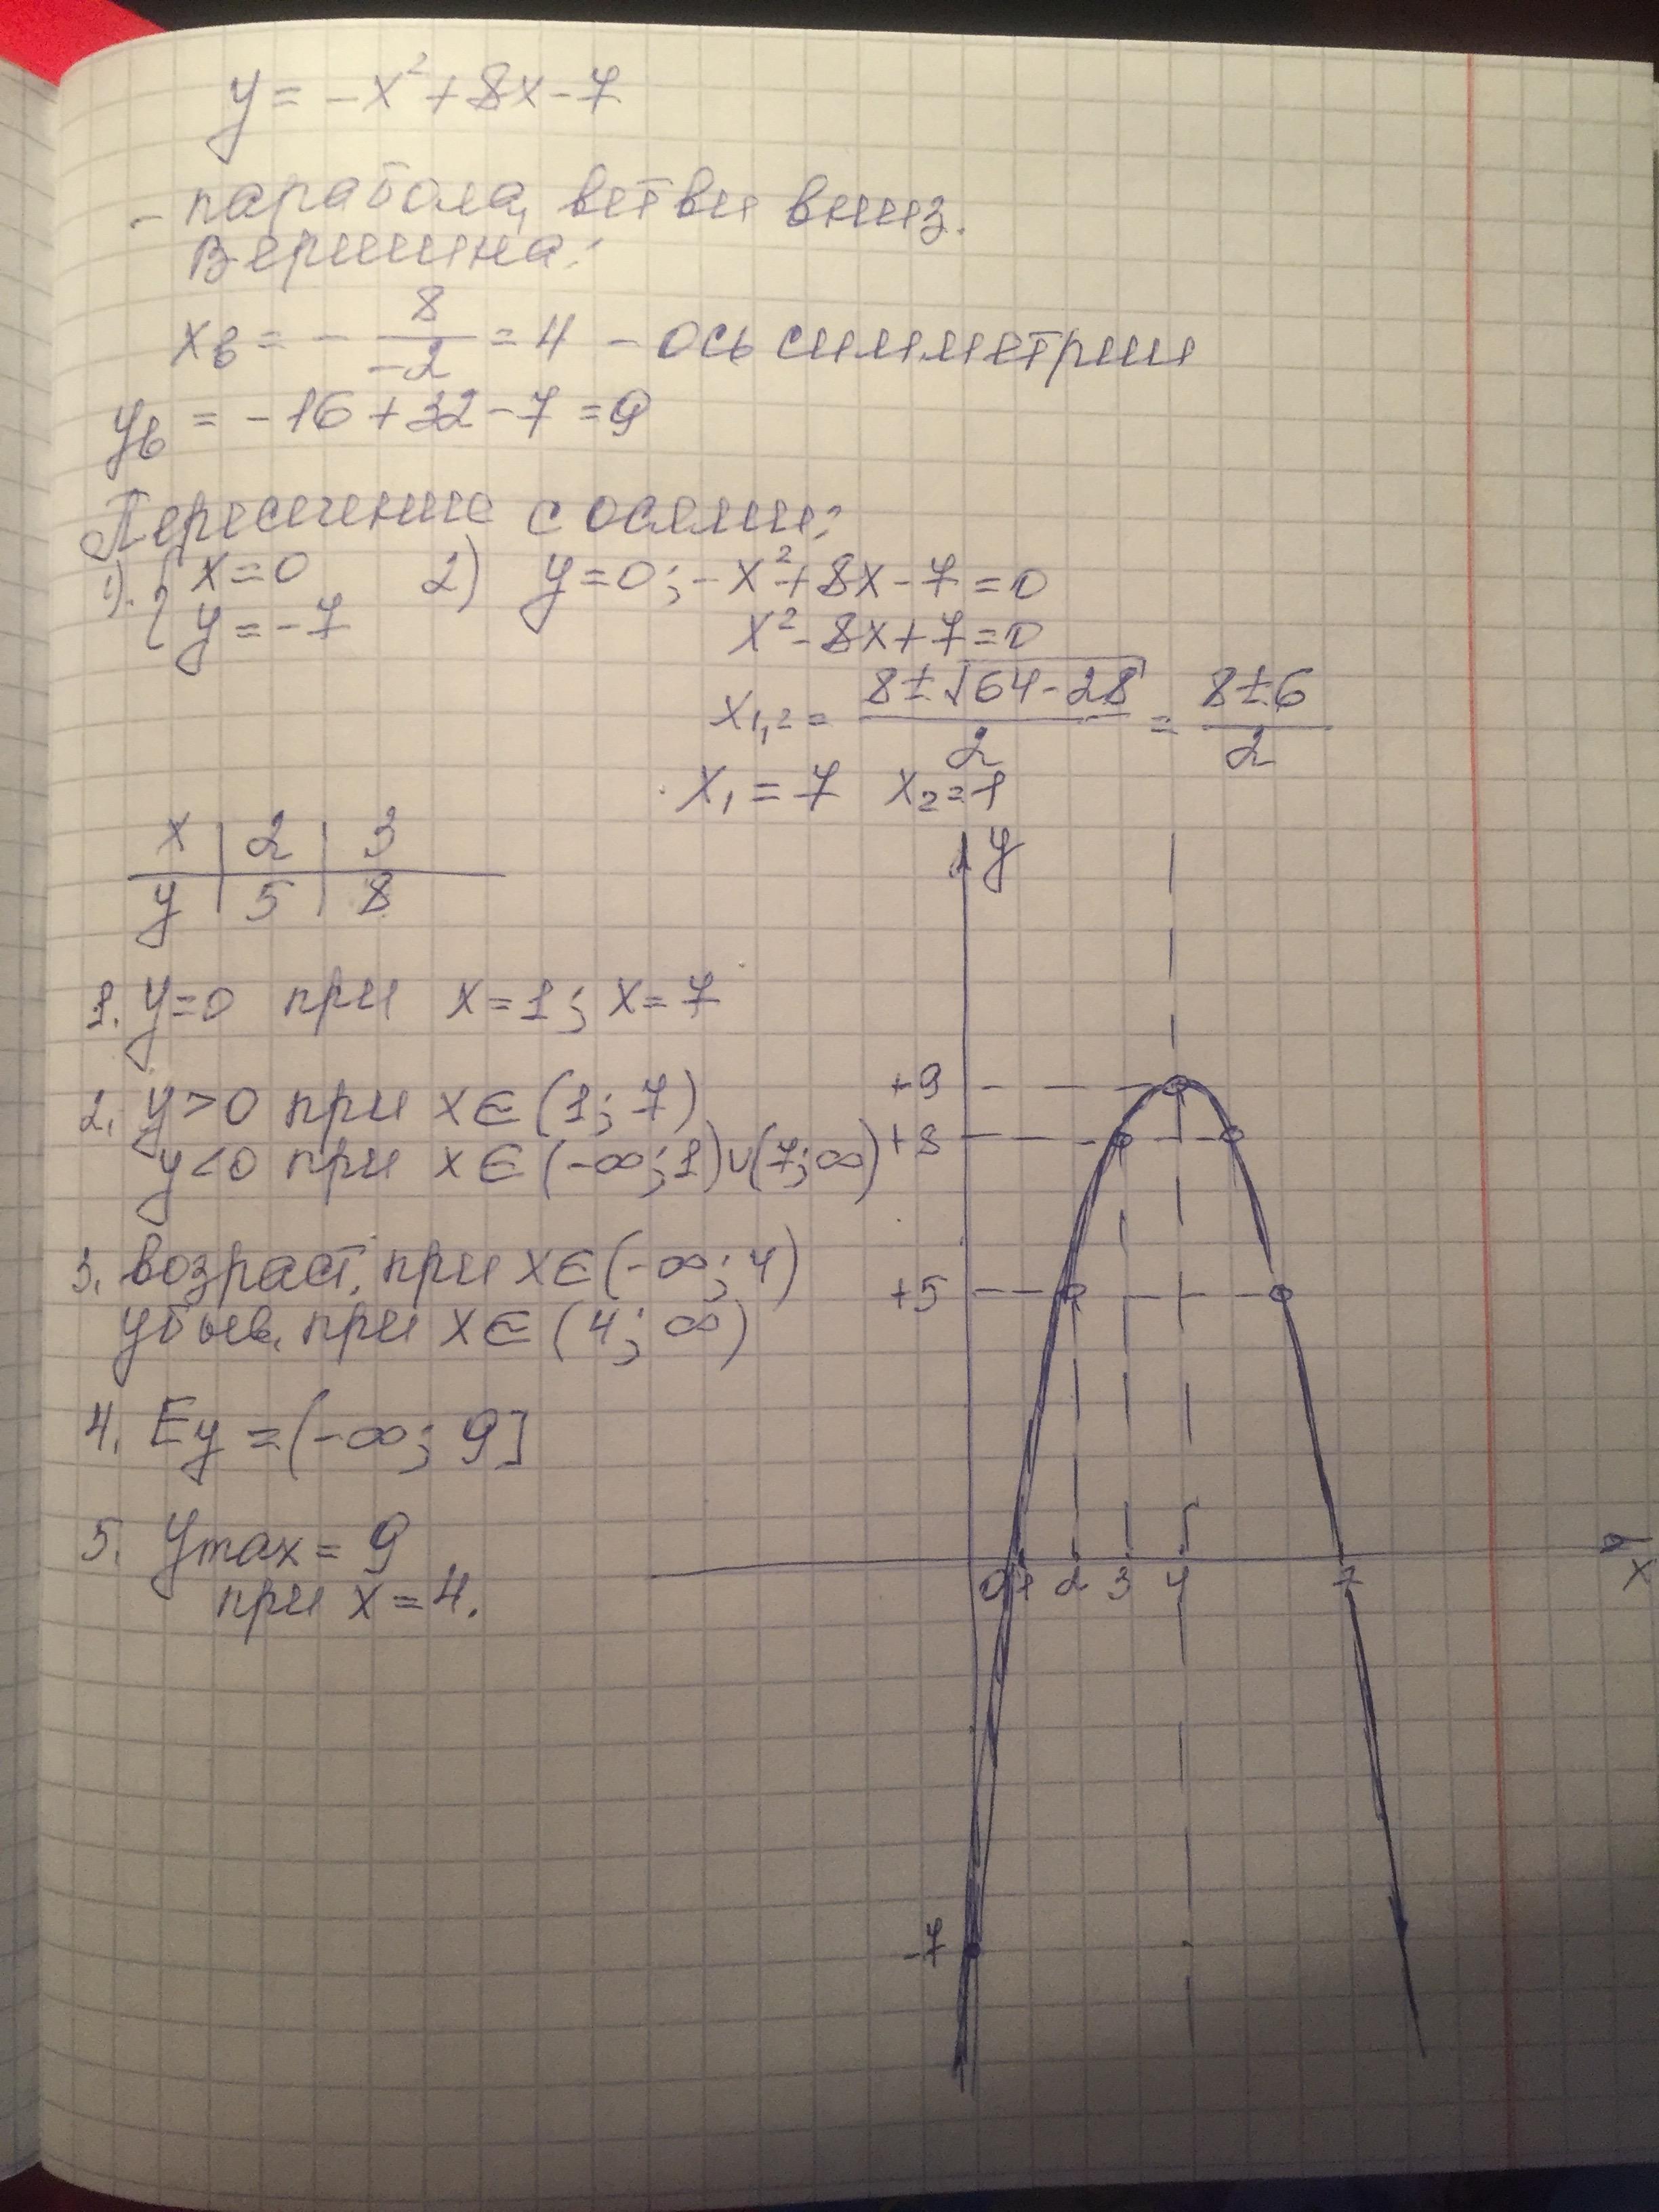 y = -x² + 8x - 7
- парабола, ветви вниз.
Вершина:
xв = - 8/-2 = 4 - ось симметрии
yв = -16 + 32 - 7 = 9
Пересечение с осями:
1). { x = 0
y = -7
2) y = 0; -x² + 8x - 7 = 0
x² - 8x + 7 = 0
x₁,₂ = (8 ± √64 - 28)/2 = (8 ± 6)/2
x₁ = 7 x₂ = 1
x | 2 | 3
y | 5 | 8
1. y = 0 при x = 1; x = 7
2. y > 0 при x ∈ (1; 7)
y < 0 при x ∈ (-∞; 1) ∪ (7; ∞)
3. возраст. при x ∈ (-∞; 4)
убыв. при x ∈ (4; ∞)
4. Ey = (-∞; 9]
5. ymax = 9
при x = 4.
y
+9
+8
+5
0 1 2 3 4 7 x
-7